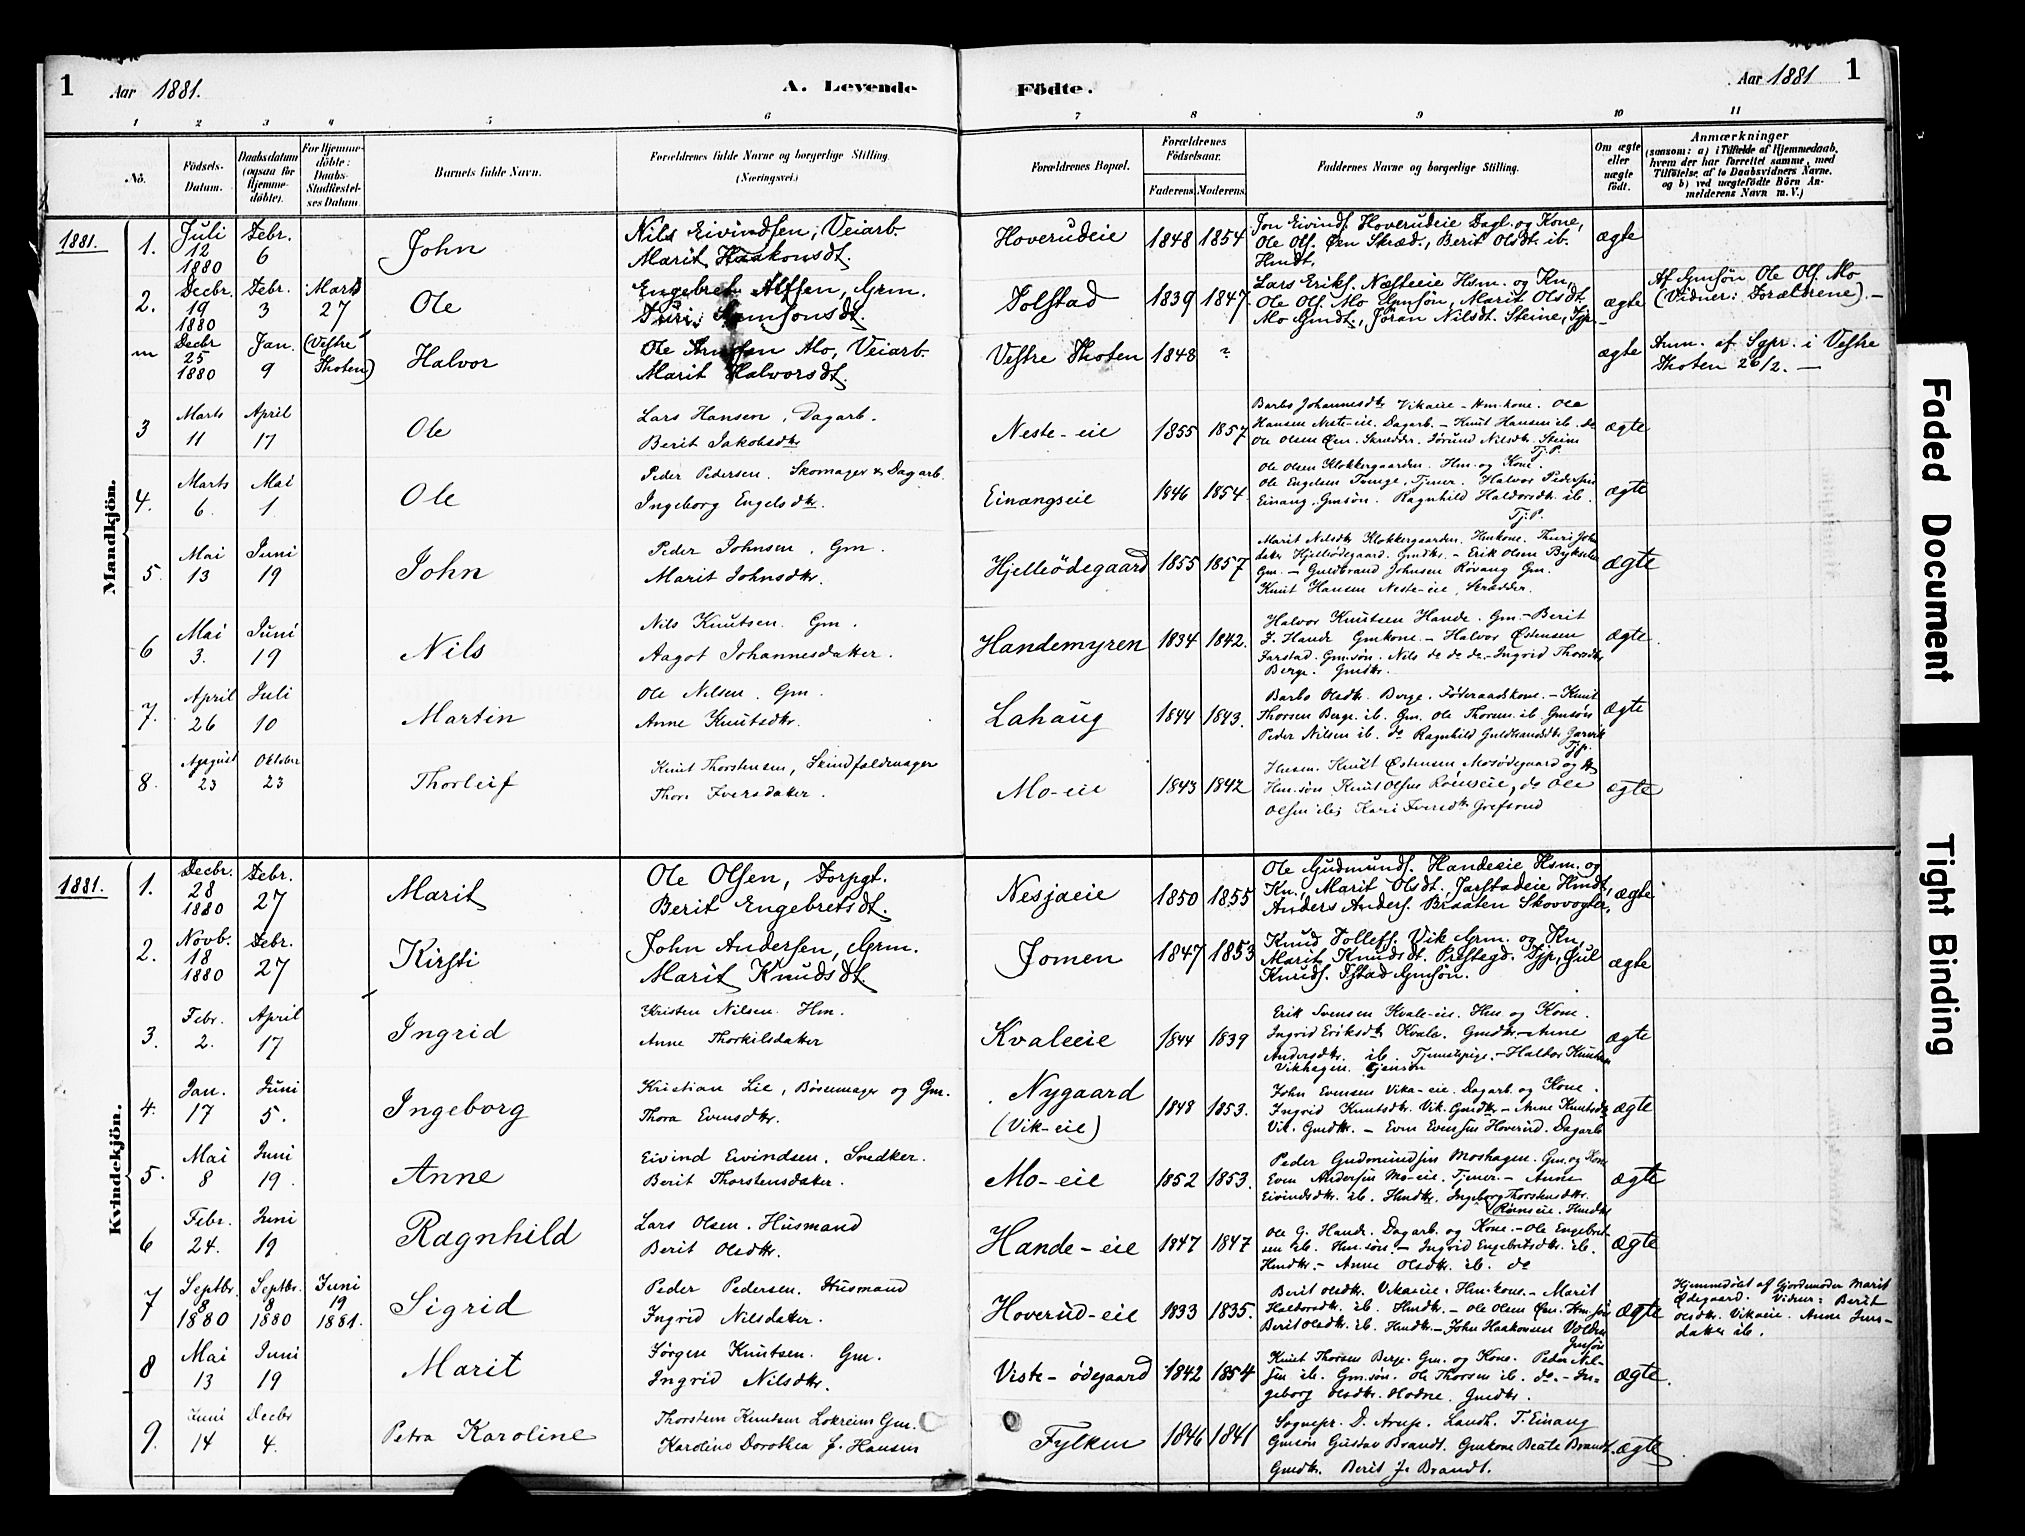 1 Aar 1881. A. Levende Födte. Aar 1881 1
1 2 3 4 5 6 7 8 9 10 11
No. Födsels-Datum. Daabsdatum (ogsaa for Hjemmedöbte). For Hjemmedöbte: Daabs-Stadfæstelses Datum. Barnets fulde Navn. Forældrenes fulde Navne og borgerlige Stilling. (Næringsvei.) Forældrenes Bopæl. Forældrenes Födselsaar. Faderens. Moderens. Faddernes Navne og borgerlige Stilling. Om ægte eller uægte födt. Anmærkninger (saasom: a) i Tilfælde af Hjemmedaab, hvem der har forrettet samme, med Tilföielse af to Daabsvidners Navne, og b) ved uægtefödte Börn Anmelderens Navn m. V.)
Mandkjön.
1881. 1. Juli 12 1880 Febr. 6 John Nils Eivindsen, Veiarb. Marit Haakonsdt. Hoverudeie 1848 1854 Jon Eivinds. Hoverudeie Dagl. og Kone, Ole Ols. Øen Skræd., Berit Olsdt. ib. Hmdt. ægte
2. Decbr. 19 1880 Febr. 3 Marts 27 Ole Engebret Alfsen, Grm. Turi Samsonsdt. Tolstad 1839 1847. Lars Eriks. Næsteeie Hsm. og Kn., Ole Ols. Mo Gmsön, Marit Olsdt. Mo Gmdt., Jöran Nilsdt. Steine, Tjp. ægte Af Gmsøn Ole Ols. Mo (Vidner: Forældrene). –
m Decbr 25 1880 Jan. 9 (Vestre Thoten) Halvor Ole Mo, Veiarb. Marit Halvorsdt. Vestre Thoten 1848 ? ægte Anm. af Sgpr. i Vestre Thoten 26/2. –
3 Marts 11 April 17 Ole Lars Hansen, Dagarb. Berit Jakobsdtr Neste-eie 1855 1857 Barbo Johannesdtr Vikaeie – Hmkone. Ole Hansen Neste-eie. Dagarb. – Knut Hansen ib. do Ole Olsen Øen. Skrædder. Jörund Nilsdtr. Steine Tj.P. ægte
4. Marts 6. Mai 1 Ole Peder Pedersen. Skomager & Dagarb. Ingeborg Engelsdtr. Einangseie 1846 1854. Ole Olsen Klokkergaarden. Hm. og Kone. Ole Engelsen Tjener. Halvor Pedersen Einang. Gmsøn. Ragnhild Haldorsdtr. ib. Tj.P. ægte
5. Mai 13 Juni 19 John Peder Johnsen, Gm. Marit Johnsdtr. Hjelleödegaard 1855 1857 Marit Nilsdtr Klokkergaarden. Hmkone. Thuri Johnsdatter Hjelleödegaard. Gmdtr. – Erik Olsen Gm. – Guldbrand Johnsen Røvang Gm. Knut Hansen Neste-eie, Skrædder. ægte
6 Mai 3. Juni 19 Nils Nils Knutsen. Gm. Aagot Johannesdatter. Handemyren 1834 1842. Halvor Knutsen Hande. Gm. – Berit J. Hande Gmkone. – Halvor Østensen Jarstad. Gmsøn. Nils do do do – Ingrid Thorsdtr Berge. Gmdtr. ægte.
7. April 26 Juli 10 Martin Ole Nilsen. Gm. Anne Knutsdtr. Lahaug 1844 1843. Barbo Olsdtr. Berge. Føderaadskone. – Knut Thorsen Berge. ib. Gm. Ole Thorsen. ib. Gmsøn Peder Nilsen ib. do Ragnhild Guldbrandsdtr Jarvik Tjp. ægte
8. August 23 Oktober 23 Thorleif Knut Thorstensen, Skindfeldmager Thora Iversdatter. Mo-eie 1843 1842 Husm. Knut Østensen Mosødegaard og K. Hm.søn Knut Olsen Rönseie, do Ole Olsen ib; Kari Iversdtr Grefsrud ægte
Kvindekjön.
1881. 1. Decbr. 28 1880 Febr. 27 Marit Ole Olsen, Forpgt. Berit Engebretsdt. Nesjaeie 1850 1855 Ole Gudmunds. Handeeie Hsm. og Kn., Marit Olsdt. Jarstadeie Hmdt., Anders Anders. Braaten Skovvogter, ægte
2. Novb. 18 1880 Febr. 27 Kirsti John Andersen, Grm. Marit Knudsdt. Jomen 1847 1853 Knud Tollefs. Vik Grm. og Kn., Marit Knudsdt. Prestegd. Tjp., Gul Knuds. Ystad Gmsøn. ægte
3. Febr. 2. April 17 Ingrid Kristen Nilsen. Hm. Anne Thorkilsdatter Kvaleeie 1844 1839 Erik Svensen Kvale-eie. Hm og Kone. Ingrid Eriksdtr Kvale. Gmdtr. – Anne Andersdtr. ib. Tjenestepige. – Halvor Knutsen Vikhagen. Gmsøn ægte
4. Jan. 17 Juni 5. Ingeborg Kristian Lie, Bösemager og Gm. Thora Evensdtr. Nygaard (Vik-eie) 1848 1853. John Evensen Vika-eie. Dagarb. og Kone. Ingrid Knutsdtr. Vik. Gmdtr. – Anne Knutsdtr Vik. Gmdtr. – Even Evensen Hoverud. Dagarb. ægte
5. Mai 8 Juni 19. Anne Eivind Eivindsen. Snedker. Berit Thorstensdatter. Mo-eie 1852 1853. Peder Gudmundsen Moshagen. Gm. og Kone Even Andersen Mo-eie. Tjener. – Anne Eivindsdtr. ib. Hmdtr. Ingeborg Thorstensdtr. Rønseie. Hmdtr ægte
6 Febr. 24. Juni 19 Ragnhild Lars Olsen. Husmand Berit Olsdtr. Hande-eie 1847 1847 Ole G. Hande. Dagarb. og Kone. – Ole Engebretsen ib. Hm.søn. – Ingrid Engebretsdtr. ib. Hmdtr. – Anne Olsdtr. ib. do ægte
7 Septbr. 8 1880 Septbr. 8 1880 Juni 19 1881. Sigrid Peder Pedersen. Husmand Ingrid Nilsdatter. Hoverud-eie 1833 1835. Berit Olsdtr. Vikaeie. Hm.kone. – Marit Haldorsdtr. ib. Hmdtr. – Ole Olsen Øen. Hm.søn Berit Olsdtr. ib. Hmdtr. – John Haakonsen Volden Gmsøn ægte Hjemmedøbt af Gjordemoder Marit Ødegaard. Vidner: Berit Olsdtr. Vikaeie. Anne Jensdatter ib.
8 Mai 13 Juni 19 Marit Jørgen Knutsen. Gm. Ingrid Nilsdtr. Viste-ødegaard 1842 1854 Knut Thorsen Berge. Gm. og Kone. Peder Nilsen ib. Gm.søn. Ole Thorsen ib. do. – Ingeborg Olsdtr. Hodne. Gmdtr. ægte.
9. Juni 14 Decbr 4. Petra Karoline Thorstein Knutsen Lokreim Gm. Karoline Dorothea f. Hansen Fylken 1846 1841 Sognepr. D. Arup. Landh. T. Einang Gmsøn Gustav Brandt. Gmkone Beate Brandt. Gmdtr. Berit J. Brandt. ægte
Faded Document
Tight Binding